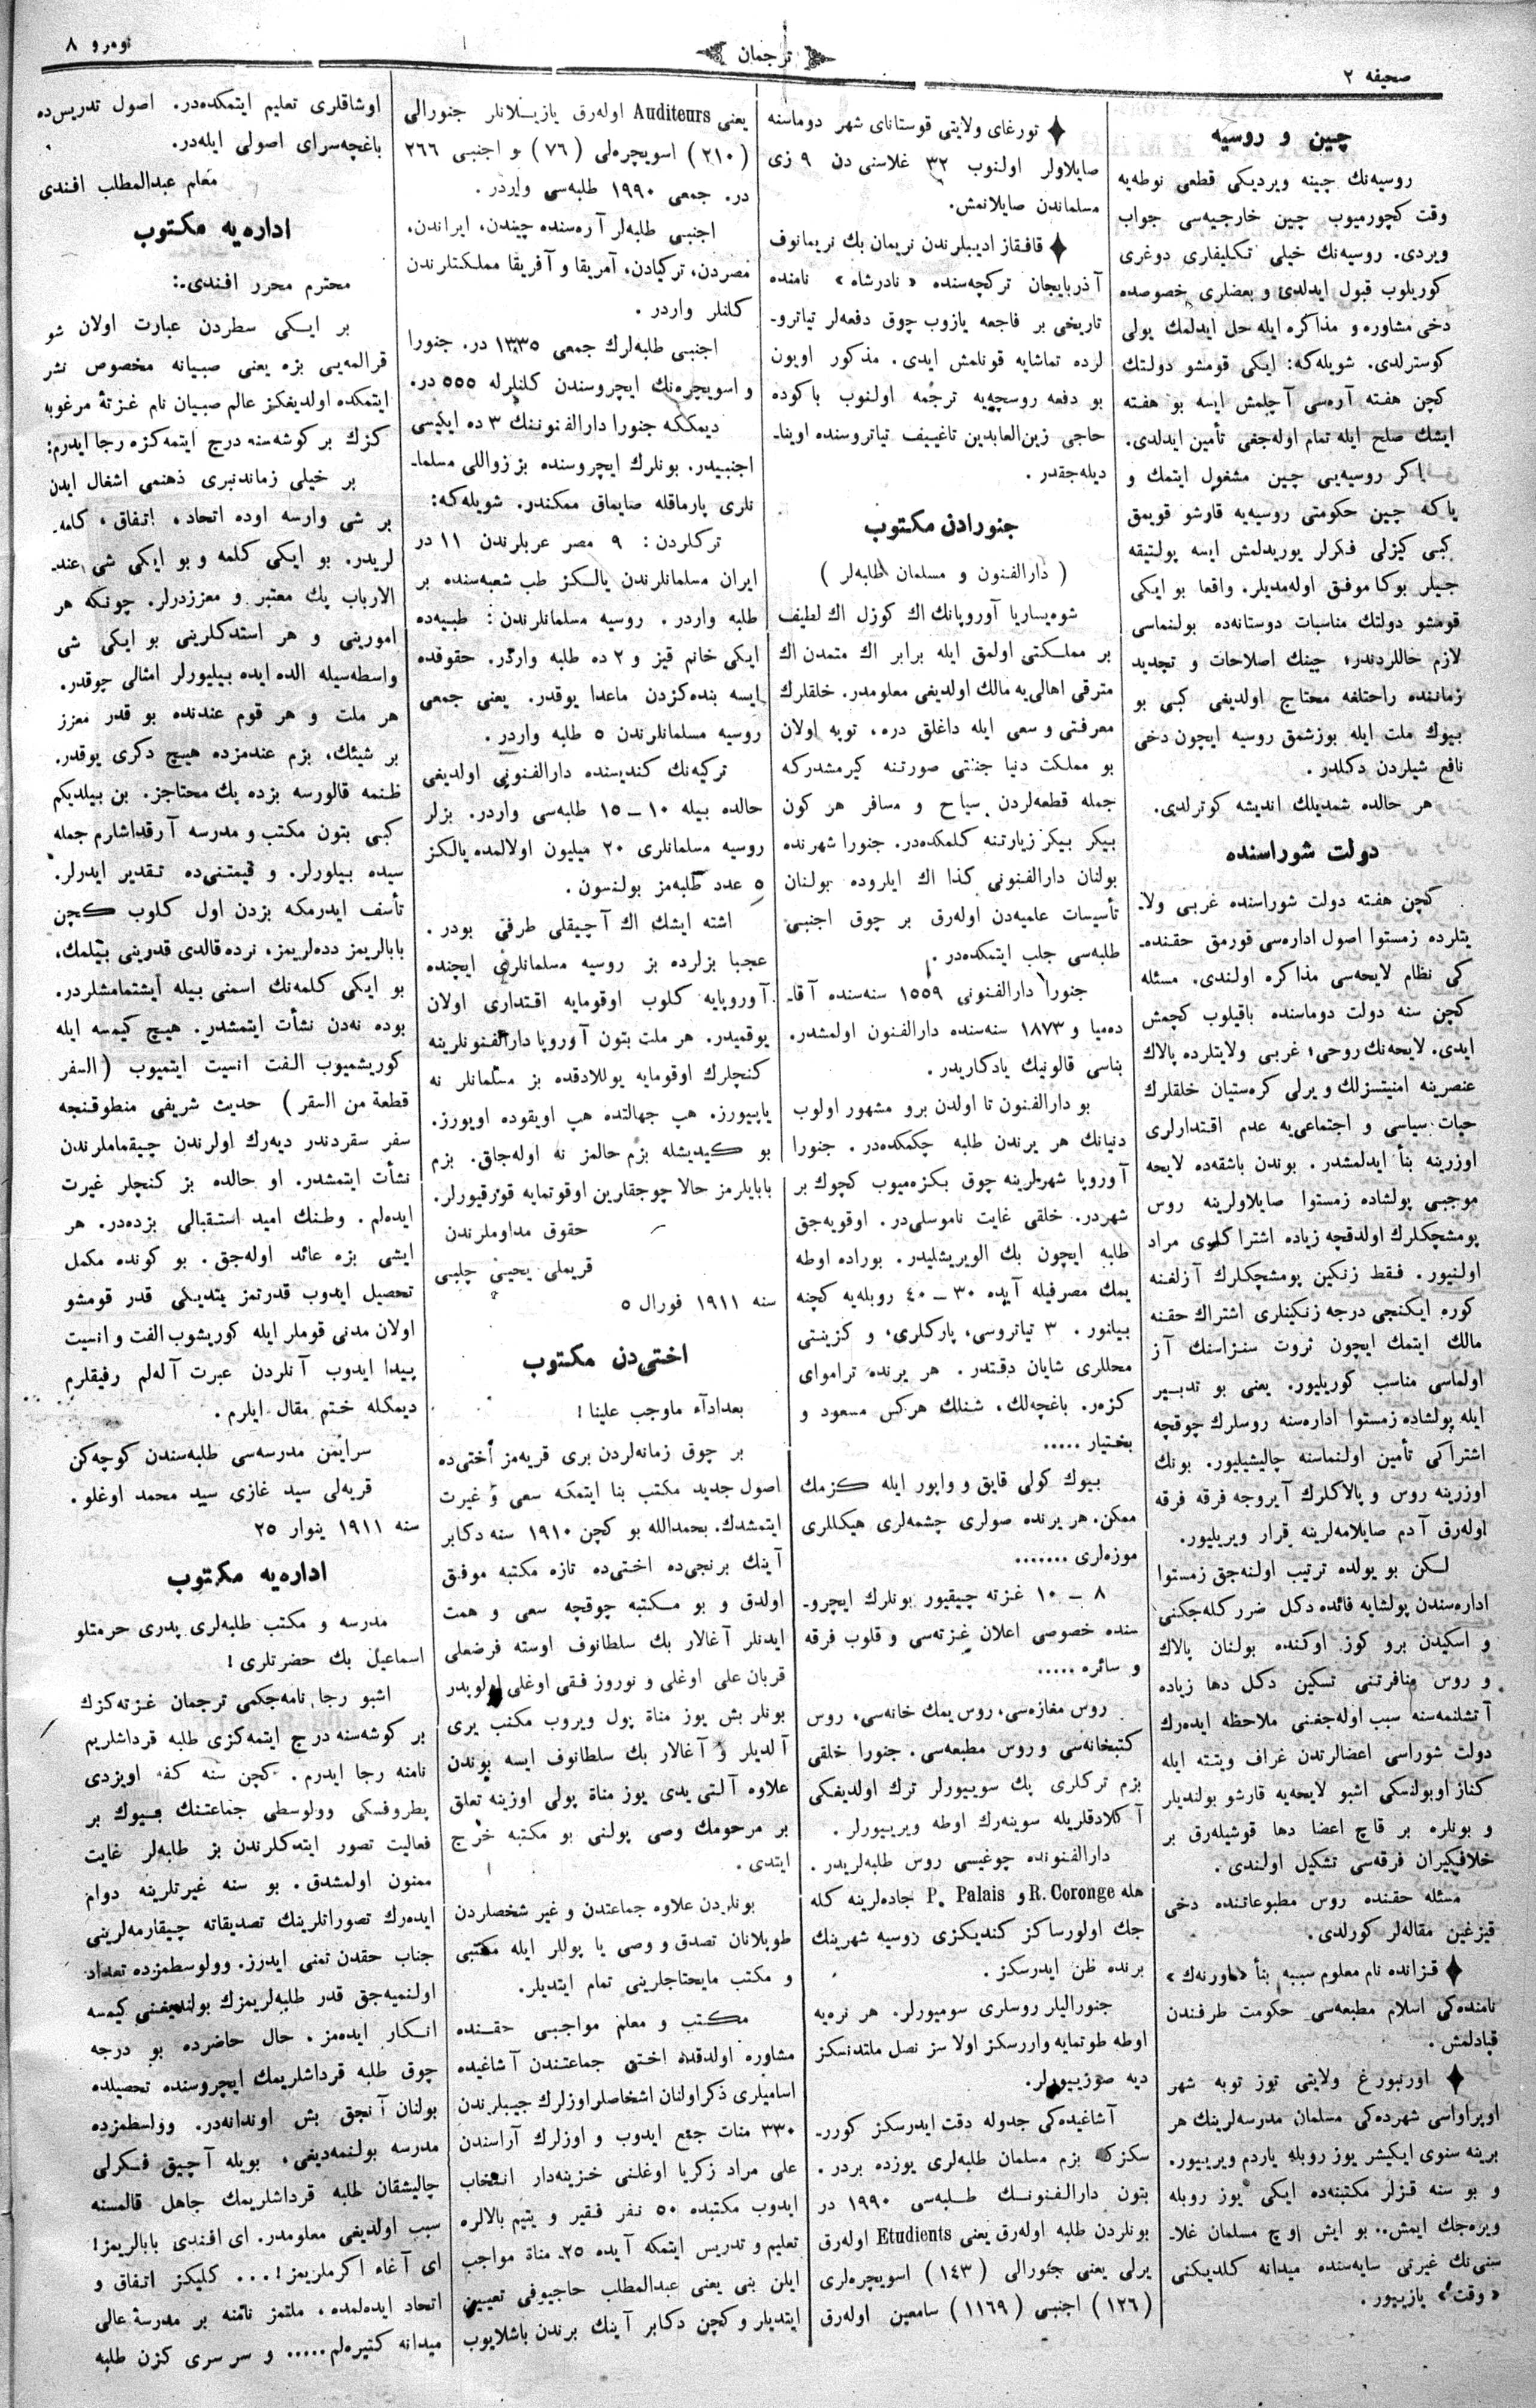 صحیفه ٢
ترجمان
نومرو ٨
چین و روسیه
روسیه‌نك چینه ویردیكی قطعی نوطه‌یه
وقت كچورمیوب چین خارجیه‌سی جواب
ویردی. روسیه‌نك خیلی تكلیفلری دوغری
كوریلوب قبول ایدلدی و بعضلری خصوصده
دخی مشاوره و مذاكره ایله حل ایدلمك یولی
كوسترلدی. شویله‌كه: ایكی قومشو دولتك
كچن هفته آره‌سی آچلمش ایسه بو هفته
ایشك صلح ایله تمام اوله‌جغی تأمین ایدلدی.
اكر روسیه‌یی چین مشغول ایتمك و
یا كه چین حكومتی روسیه‌یه قارشو قویمق
كبی كیزلی فكرلر یوریدلمش ایسه پولتیقه
جیلر بوكا موفق اوله‌مدیلر. واقعا بو ایكی
قومشو دولتك مناسبات دوستانه‌ده بولنماسی
لازم حاللردندر؛ چینك اصلاحات و تجدید
زماننده راحتلغه محتاج اولدیغی كبی بو
بیوك ملت ایله بوزشمق روسیه ایچون دخی
نافع شیلردن دكلدر.
هر حالده شمدیلك اندیشه كوترلدی.
دولت شوراسنده
كچن هفته دولت شوراسنده غربی ولا-
یتلرده زمستوا اصول اداره‌سی قورمق حقنده-
كی نظام لایحه‌سی مذاكره اولندی. مسئله
كچن سنه دولت دوماسنده باقیلوب كچمش
ایدی. لایحه‌نك روحی؛ غربی ولایتلرده پالاك
عنصرینه امنیتسزلك و یرلی كرستیان خلقلرك
حیات سیاسی و اجتماعی‌یه عدم اقتدارلری
اوزرینه بنأ ایدلمشدر. بوندن باشقه‌ده لایحه
موجبی پولشاده زمستوا صایلاولرینه روس
پومشچكلرك اولدقچه زیاده اشتراكلری مراد
اولنیور. فقط زنكین پومشچكلرك آزلغنه
كوره ایكنجی درجه زنكینلری اشتراك حقنه
مالك ایتمك ایچون ثروت سنزاسنك آز
اولماسی مناسب كوریلیور. یعنی بو تدبیر
ایله پولشاده زمستوا اداره‌سنه روسلرك چوقچه
اشتراكی تأمین اولنماسنه چالیشیلیور. بونك
اوزرینه روس و پالاكلرك آیروجه فرقه فرقه
اوله‌رق آدم صایلامه‌لرینه قرار ویریلیور.
لكن بو یولده ترتیب اولنه‌جق زمستوا
اداره‌سندن پولشایه فائده دكل ضرر كله‌جكنی
و اسكیدن برو كوز اوكنده بولنان پالاك
و روس منافرتنی تسكین دكل دها زیاده
آتشلنمه‌سنه سبب اوله‌جغنی ملاحظه ایده‌رك
دولت شوراسی اعضالرندن غراف ویتته ایله
كناز اوبولنسكی اشبو لایحه‌یه قارشو بولندیلر
و بونلره بر قاچ اعضا دها قوشیله‌رق بر
خلافكیران فرقه‌سی تشكیل اولندی.
مسئله حقنده روس مطبوعاتنده دخی
قیزغین مقاله‌لر كورلدی.
قزانده نام معلوم سببه بنأ «ماورنه‌ك»
نامنده‌كی اسلام مطبعه‌سی حكومت طرفندن
قپادلمش.
اورنبورغ ولایتی توز توبه شهر
اوپراواسی شهرده‌كی مسلمان مدرسه‌لرینك هر
برینه سنوی ایكیشر یوز روبله یاردم ویرییور.
و بو سنه قزلر مكتبنه‌ده ایكی یوز روبله
ویره‌جك ایمش.. بو ایش اوچ مسلمان غلا-
سنی‌نك غیرتی سایه‌سنده میدانه كلدیكنی
«وقت» یازییور.
تورغای ولایتی قوستانای شهر دوماسنه
صایلاولر اولنوب ٣٢ غلاسنی دن ٩ زی
مسلماندن صایلانمش.
قافقاز ادیبلرندن نریمان بك نریمانوف
آذربایجان تركچه‌سنده «نادرشاه» نامنده
تاریخی بر فاجعه یازوب چوق دفعه‌لر تیاترو-
لرده تماشایه قونلمش ایدی. مذكور اویون
بو دفعه روسچه‌یه ترجمه اولنوب باكوده
حاجی زین‌العابدین تاغییف تیاتروسنده اوینا-
دیله‌جقدر.
جنورادن مكتوب
( دارالفنون و مسلمان طلبه‌لر )
شوه‌یساریا آوروپانك اك كوزل اك لطیف
بر مملكتی اولمق ایله برابر اك متمدن اك
مترقی اهالی‌یه مالك اولدیغی معلومدر. خلقلرك
معرفتی و سعی ایله داغلق دره، توپه اولان
بو مملكت دنیا جنتی صورتنه كیرمشدركه
جمله قطعه‌لردن سیاح و مسافر هر كون
بیكر بیكر زیارتنه كلمكده‌در. جنورا شهرنده
بولنان دارالفنونی كذا اك ایلروده بولنان
تأسیسات علمیه‌دن اوله‌رق بر چوق اجنبی
طلبه‌سی جلب ایتمكده‌در.
جنورا دارالفنونی ١٥٥٩ سنه‌سنده آقا-
ده‌میا و ١٨٧٣ سنه‌سنده دارالفنون اولمشدر.
بناسی قالونیك یادكاریدر.
بو دارالفنون تا اولدن برو مشهور اولوب
دنیانك هر یرندن طلبه چكمكده‌در. جنورا
آوروپا شهرلرینه چوق بكزه‌میوب كچوك بر
شهردر. خلقی غایت ناموسلی‌در. اوقویه‌جق
طلبه ایچون بك الویریشلیدر. بوراده اوطه
یمك مصرفیله آیده ٣٠ – ٤٠ روبله‌یه كچنه
بیانور. ٣ تیاتروسی، پاركلری، و كزینتی
محللری شایان دقتدر. هر یرنده تراموای
كزه‌ر. باغچه‌لك، شنلك هركس مسعود و
بختیار .....
بیوك كولی قایق و واپور ایله كزمك
ممكن. هر یرنده صولری چشمه‌لری هیكللری
موزه‌لری .......
٨ – ١٠ غزته چیقیور بونلرك ایچرو-
سنده خصوصی اعلان غزته‌سی و قلوب فرقه
و سائره .....
روس مغازه‌سی، روس یمك خانه‌سی، روس
كتبخانه‌سی و روس مطبعه‌سی. جنورا خلقی
بزم تركلری پك سوییورلر ترك اولدیغكی
آكلادقلریله سوینه‌رك اوطه ویرییورلر.
دارالفنونده چوغیسی روس طلبه‌لریدر.
هله R. Coronge و P. Palais جاده‌لرینه كله
جك اولورساكز كندیكزی روسیه شهرینك
برنده ظن ایدرسكز.
جنورالیلر روسلری سومیورلر. هر نره‌یه
اوطه طوتمایه واررسكز اولا سز نصل ملتدنسكز
دیه صوزییورلر.
آشاغیده‌كی جدوله دقت ایدرسكز كورر-
سكزكه بزم مسلمان طلبه‌لری یوزده بردر.
بتون دارالفنونك طلبه‌سی ١٩٩٠ در
بونلردن طلبه اوله‌رق یعنی Etudients اوله‌رق
یرلی یعنی جنورالی (١٤٣) اسویچره‌لری
(١٢٦) اجنبی (١١٦٩) سامعین اوله‌رق
یعنی Auditeurs اوله‌رق یازیلانلر جنورالی
(٢١٠) اسویچره‌لی (٧٦) و اجنبی ٢٦٦
در. جمعی ١٩٩٠ طلبه‌سی واردر.
اجنبی طلبه‌لر آره‌سنده چیندن، ایراندن،
مصردن، تركیادن، آمریقا و آفریقا مملكتلرندن
كلنلر واردر.
اجنبی طلبه‌لرك جمعی ١٣٣٥ در. جنورا
و اسویچره‌نك ایچروسندن كلنلرله ٥٥٥ در.
دیمككه جنورا دارالفنوننك ٣ ده ایكیسی
اجنبیدر. بونلرك ایچروسنده بز زواللی مسلما-
نلری پارماقله صایماق ممكندر. شویله‌كه:
تركلردن: ٩ مصر عربلرندن ١١ در
ایران مسلمانلرندن یالكز طب شعبه‌سنده بر
طلبه واردر. روسیه مسلمانلرندن: طبیه‌ده
ایكی خانم قیز و ٢ ده طلبه واردر. حقوقده
ایسه بنده‌كزدن ماعدا یوقدر. یعنی جمعی
روسیه مسلمانلرندن ٥ طلبه واردر.
تركیه‌نك كندیسنده دارالفنونی اولدیغی
حالده بیله ١٠ – ١٥ طلبه‌سی واردر. بزلر
روسیه مسلمانلری ٢٠ میلیون اولالمده یالكز
٥ عدد طلبه‌مز بولنسون.
اشته ایشك اك آچیقلی طرفی بودر.
عجبا بزلرده بز روسیه مسلمانلری ایچنده
آوروپایه كلوب اوقومایه اقتداری اولان
یوقمیدر. هر ملت بتون آوروپا دارالفنونلرینه
كنچلرك اوقومایه یوللادقده بز مسلمانلر نه
یاپیورز. هپ جهالتده هپ اویقوده اویورز.
بو كیدیشله بزم حالمز نه اوله‌جاق. بزم
بابایلرمز حالا چوجقارین اوقوتمایه قورقیورلر.
حقوق مداوملرندن
قریملی یحیی چلبی
سنه ١٩١١ فورال ٥
اختی‌دن مكتوب
بعدادآء ماوجب علینا!
بر چوق زمانه‌لردن بری قریه‌مز أختی‌ده
اصول جدید مكتب بنا ایتمكه سعی و غیرت
ایتمشدك. بحمدالله بو كچن ١٩١٠ سنه دكابر
آینك برنجی‌ده اختی‌ده تازه مكتبه موفق
اولدق و بو مكتبه چوقچه سعی و همت
ایدنلر آغالار بك سلطانوف اوسته فرضعلی
قربان علی اوغلی و نوروز فقی اوغلی
بونلر بش یوز مناة پول ویروب مكتب یری
آلدیلر و آغالار بك سلطانوف ایسه بوندن
علاوه آلتی یدی یوز مناة پولی اوزینه تعلق
بر مرحومك وصی پولنی بو مكتبه خرج
ایتدی.
بونلردن علاوه جماعتدن و غیر شخصلردن
طوپلانان تصدق و وصی یا پوللر ایله مكتبی
و مكتب مایحتاجلرینی تمام ایتدیلر.
مكتب و معلم مواجبی حقنده
مشاوره اولدقده اختی جماعتندن آشاغیده
اسامیلری ذكر اولنان اشخاصلر اوزلرك جیبلرندن
٣٣٠ منات جمع ایدوب و اوزلرك آراسندن
علی مراد زكریا اوغلنی خزینه‌دار انتخاب
ایدوب مكتبده ٥٠ نفر فقیر و یتیم بالالره
تعلیم و تدریس ایتمكه آیده ٢٥ مناة مواجب
ایلن بنی یعنی عبدالمطلب حاجیوفی تعیین
ایتدیلر و كچن دكابر آینك برندن باشلایوب
اوشاقلری تعلیم ایتمكده‌در. اصول تدریس‌ده
باغچه‌سرای اصولی ایله‌در.
معلم عبدالمطلب افندی
اداره‌یه مكتوب
محترم محرر افندی:
بر ایكی سطردن عبارت اولان شو
قرالمه‌یی بزه یعنی صبیانه مخصوص نشر
ایتمكده اولدیغكز عالم صبیان نام غزتهٔ مرغوبه
كزك بر كوشه‌سنه درج ایتمه‌كزه رجا ایدرم:
بر خیلی زماندنبری ذهنمی اشغال ایدن
بر شی وارسه اوده اتحاد، اتفاق، كلمه-
لریدر. بو ایكی كلمه و بو ایكی شی عند-
الارباب پك معتبر و معززدرلر. چونكه هر
امورینی و هر استدكلرینی بو ایكی شی
واسطه‌سیله الده ایده بیلیورلر امثالی چوقدر.
هر ملت و هر قوم عندنده بو قدر معزز
بر شیئك، بزم عندمزده هیچ دكری یوقدر.
ظنمه قالورسه بزده پك محتاجز. بن بیلدیكم
كبی بتون مكتب و مدرسه آرقداشارم جمله
سیده بیلورلر. و قیمتنی‌ده تقدیر ایدرلر.
تأسف ایدرمكه بزدن اول كلوب كچن
بابالریمز دده‌لریمز، نرده قالدی قدرینی بیلمك،
بو ایكی كلمه‌نك اسمنی بیله ایشتمامشلردر.
بوده نه‌دن نشأت ایتمشدر. هیچ كیمسه ایله
كوریشمیوب الفت انسیت ایتمیوب (السفر
قطعة من السقر) حدیث شریفی منطوقنجه
سفر سقردندر دیه‌رك اولرندن چیقماملرندن
نشأت ایتمشدر. او حالده بز كنچلر غیرت
ایده‌لم. وطنك امید استقبالی بزده‌در. هر
ایشی بزه عائد اوله‌جق. بو كونده مكمل
تحصیل ایدوب قدرتمز یتدیكی قدر قومشو
اولان مدنی قوملر ایله كوریشوب الفت و انسیت
پیدا ایدوب آنلردن عبرت آله‌لم رفیقلرم
دیمكله ختم مقال ایلرم.
سرایمن مدرسه‌سی طلبه‌سندن كوچه‌كن
قریه‌لی سید غازی سید محمد اوغلو.
سنه ١٩١١ ینوار ٢٥
اداره‌یه مكتوب
مدرسه و مكتب طلبه‌لری پدری حرمتلو
اسماعیل بك حضرتلری!
اشبو رجا نامه‌جكمی ترجمان غزته‌كزك
بر كوشه‌سنه درج ایتمه‌كزی طلبه قرداشلریم
نامنه رجا ایدرم. كچن سنه كفه اویزدی
پطروفسكی وولوسطی جماعتنك بیوك بر
فعالیت تصور ایتدكلرندن بز طلبه‌لر غایت
ممنون اولمشدق. بو سنه غیرتلرینه دوام
ایده‌رك تصوراتلرینك تصدیقاته چیقارمه‌لرینی
جناب حقدن تمنی ایدرز. وولوسطمزده تعداد
اولنمیه‌جق قدر طلبه‌لریمزك بولندیغنی كیمسه
انكار ایده‌مز. حال حاضرده بو درجه
چوق طلبه قرداشلریمك ایچروسنده تحصیلده
بولنان آنجق بش اوندانه‌در. وولسطمزده
مدرسه بولنمه‌دیغی، بویله آچیق فكرلی
چالیشقان طلبه قرداشلریمك جاهل قالمسنه
سبب اولدیغی معلومدر. ای افندی بابالریمز!
ای آغاء اكرملریمز!... كلیكز اتفاق و
اتحاد ایده‌لمده، ملتمز نامنه بر مدرسهٔ عالی
میدانه كتیره‌لم..... و سر سری كزن طلبه